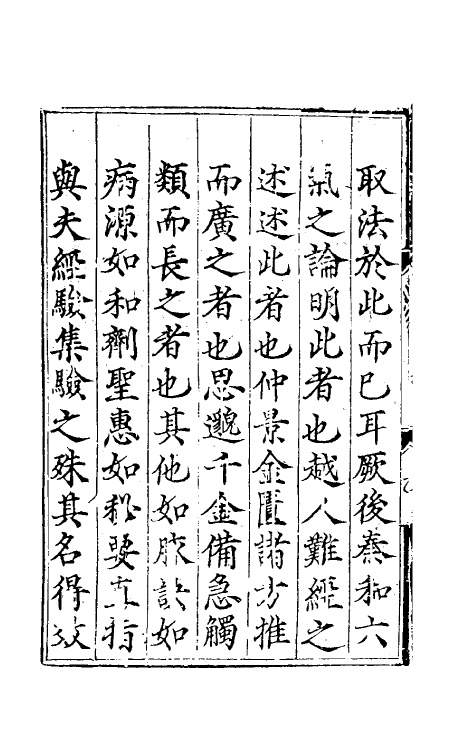 取法於此而已耳厥後秦和六
氣之論明此者也越人難經之
述述此者也仲景金匱諸方推
而廣之者也思邈千金備急觸
類而長之者也其他如脉訣如
病源如和劑聖惠如秘要真指
與夫經驗集驗之殊其名得效